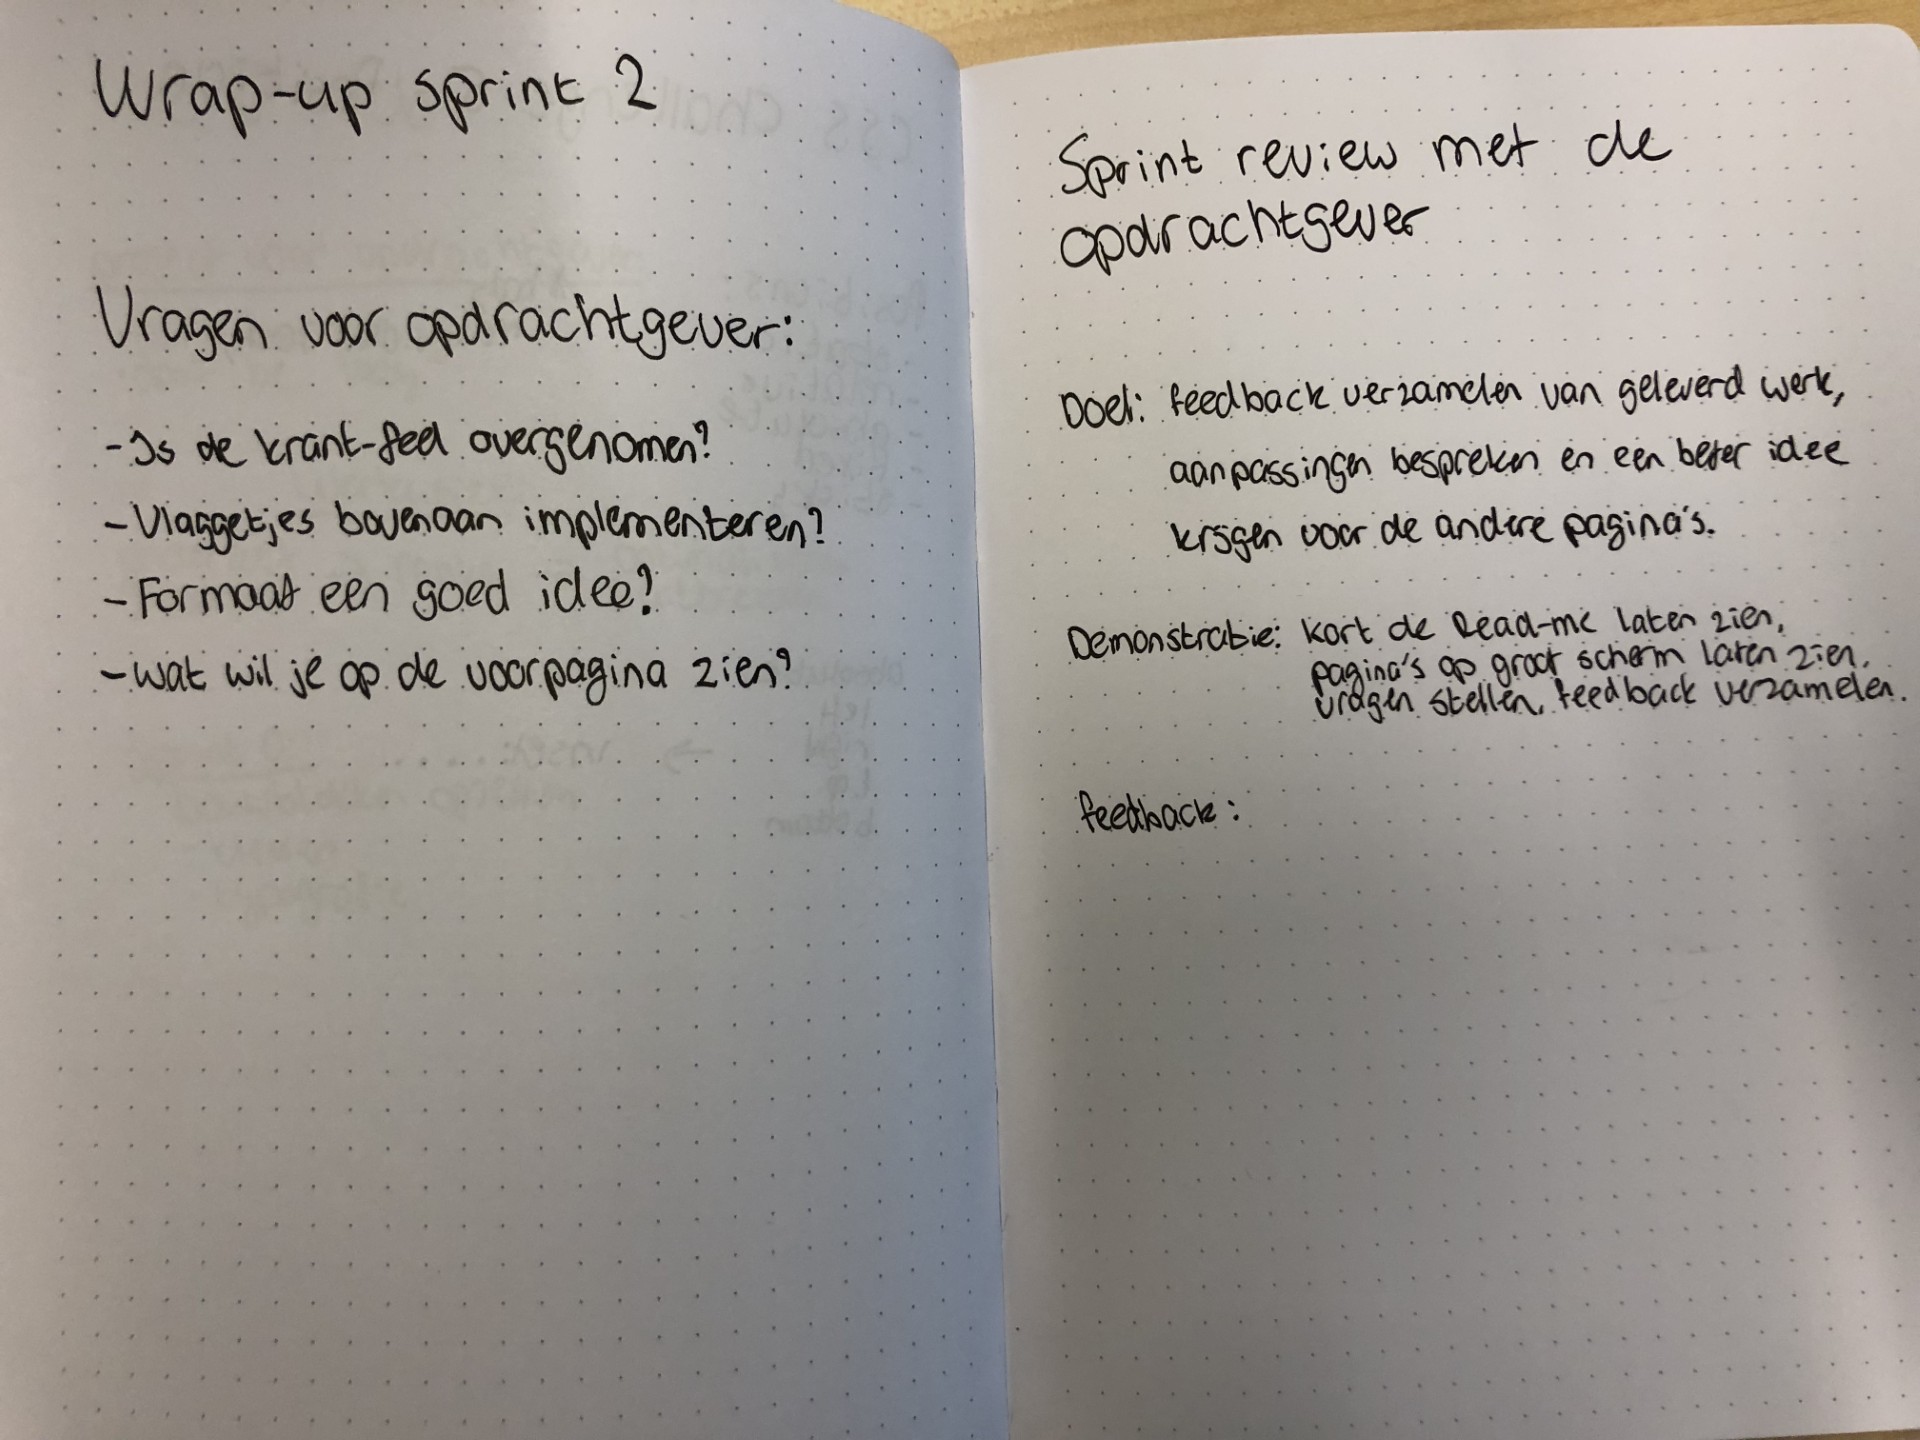 Wrap-up sprint 2
Vragen voor opdrachtgever:
- Is de krant-feel overgenomen?
- Vlaggetjes bovenaan implementeren?
- Formaat een goed idee?
- Wat wil je op de voorpagina zien?
Sprint review met de
opdrachtgever
Doel: feedback verzamelen van geleverd werk,
aanpassingen bespreken en een beter idee
krijgen voor de andere pagina's.
Demonstratie: Kort de Read-me laten zien,
pagina's op groot scherm laten zien.
vragen stellen, feedback verzamelen.
feedback: